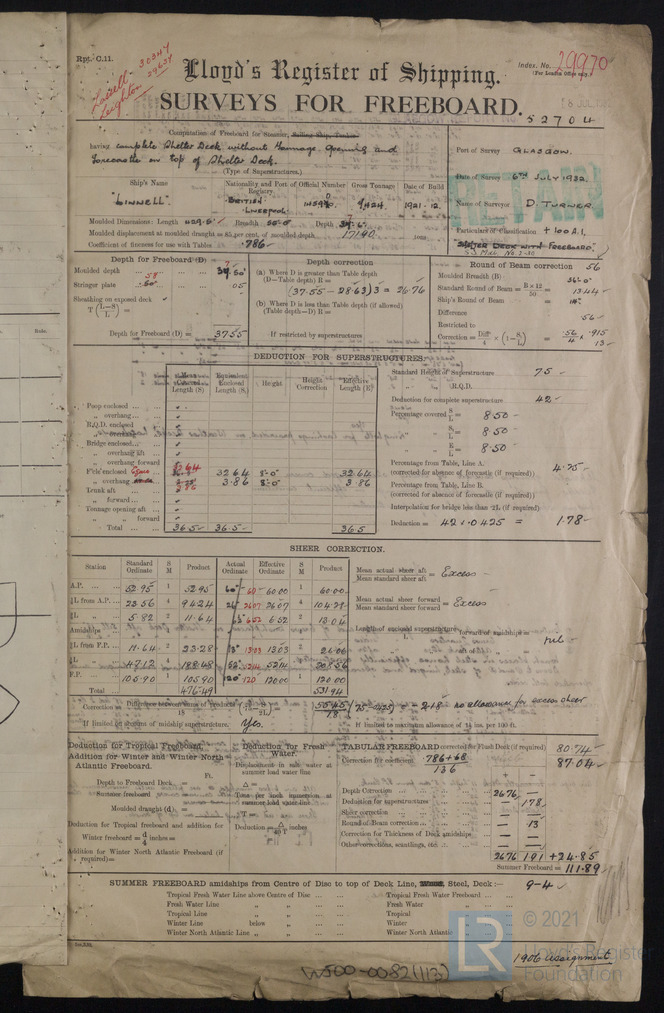 Rpt. C.11.
30347
29634
Index. No. 29970
(For London Office only.)
Lloyd's Register of Shipping.
SURVEYS FOR FREEBOARD.
52704
Computation of Freeboard for Steamer, Sailing Ship, Tanker
having complete Shelter Deck without Tonnage Opening and
forecastle on top of Shelter Deck.
(Type of Superstructures.)
Port of Survey GLASGOW.
Date of Survey 6TH JULY 1932
Name of Surveyor D. TURNER.
Particulars of Classification +100A1,
SHELTER DECK WITH FREEBOARD
RETAIN
Ship's Name
Nationality and Port of Registry.
Official Number
Gross Tonnage
Date of Build
"LINNELL"
BRITISH
LIVERPOOL
1921-12
Moulded Dimensions: Length 429.5' Breadth Depth
Moulded displacement at moulded draught = 85 per cent. of moulded depth 17140 tons
Coefficient of fineness for use with Tables .786
Depth for Freeboard (D)
Moulded depth
Stringer plate .05
Sheathing on exposed deck
T (L-S/L) =
Depth for Freeboard (D) = 37.55
Depth correction
(a) Where D is greater than Table depth
(D-Table depth) R =
(37.55 - 28.63) 3 = 26.76
(b) Where D is less than Table depth (if allowed)
(Table depth-D) R =
If restricted by superstructures
Round of Beam correction
Moulded Breadth (B)
Standard Round of Beam = B × 12/50 = 13.44
Ship's Round of Beam =
Difference .56
Restricted to
Correction = Diff/4 × (1-S/L) = .56/4 × .915
.13
DEDUCTION FOR SUPERSTRUCTURES.
Mean Covered Length (S)
Equivalent Enclosed Length (S₁)
Height
Height Correction
Effective Length (E)
Poop enclosed
" overhang
R.Q.D. enclosed
" overhang
Bridge enclosed
" overhang aft
" overhang forward
F'cle enclosed 32.64 8'-0" 32.64
" overhang 3.86 8'-0" 3.86
Trunk aft
" forward
Tonnage opening aft
" " forward
Total 36.5 36.5 36.5
Standard Height of Superstructure 7.5
" " R.Q.D.
Deduction for complete superstructure 42
Percentage covered S/L = 8.50
" S₁/L = 8.50
" E/L = 8.50
Percentage from Table, Line A.
(corrected for absence of forecastle (if required)) 4.25
Percentage from Table, Line B.
(corrected for absence of forecastle (if required))
Interpolation for bridge less than ·2L (if required)
Deduction = 42 × 0.425 = 1.78
SHEER CORRECTION.
Station
Standard Ordinate
S M
Product
Actual Ordinate
Effective Ordinate
S M
Product
A.P. 52.95 1 52.95 60" 60 60.00 1 60.00
⅙L from A.P. 23.56 4 94.24 26" 26.07 26.07 4 104.28
⅓L " 5.82 2 11.64 6½" 6.52 6.52 2 13.04
Amidships
⅓L from F.P. 11.64 2 23.28 13" 13.03 13.03 2 26.06
⅙L " 47.12 4 188.48 52" 52.14 52.14 4 208.56
F.P. 105.90 1 105.90 120" 120 120.00 1 120.00
Total 476.49 531.94
Mean actual sheer aft / Mean standard sheer aft = Excess
Mean actual sheer forward / Mean standard sheer forward = Excess
Length of enclosed superstructure forward of amidships = nil
" aft of " =
Correction = Difference between sums of products/18 (·75-S/2L) = 55.45/18 (.75-.0425) = -2.18 no allowance for excess sheer
If limited on account of midship superstructure. Yes.
If limited to maximum allowance of 1½ ins. per 100 ft.
Deduction for Tropical Freeboard.
Addition for Winter and Winter North Atlantic Freeboard.
Ft.
Depth to Freeboard Deck =
Summer freeboard =
Moulded draught (d) =
Deduction for Tropical freeboard and addition for Winter freeboard = d/4 inches =
Addition for Winter North Atlantic Freeboard (if required) =
Deduction for Fresh Water.
Displacement in salt water at summer load water line
Δ =
Tons per inch immersion at summer load water line
T =
Deduction = Δ/40T inches
TABULAR FREEBOARD corrected for Flush Deck (if required) 80.74
Correction for coefficient .786+.68/1.36 87.04
+ -
Depth Correction 26.76 -
Deduction for superstructures - 1.78
Sheer correction - -
Round of Beam correction - .13
Correction for Thickness of Deck amidships - -
Other corrections, scantlings, etc. - -
26.76 1.91 +24.85
Summer Freeboard = 111.89
SUMMER FREEBOARD amidships from Centre of Disc to top of Deck Line, Wood, Steel, Deck:— 9-4
Tropical Fresh Water Line above Centre of Disc
Fresh Water Line " "
Tropical Line " "
Winter Line below "
Winter North Atlantic Line " "
Tropical Fresh Water Freeboard
Fresh Water "
Tropical "
Winter "
Winter North Atlantic "
1906 assignment
W500-0082(1/3)
LR
© 2021
Lloyd's Register
Foundation